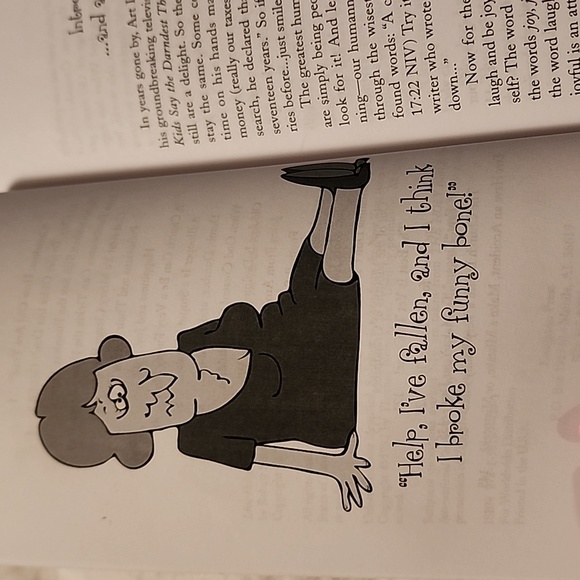 "Help, I've fallen, and I think
I broke my funny bone!"
...and
In years gone by, Art
his groundbreaking
Kids Say the Darndest
still are a delight. So the
stay the same. Some
time on his hands
money (really our taxes
search, he declared
seventeen years." So
ries before...Just smile
The greatest
are simply being
look for it! And
ning—our
through the wisest
found words: "A
17:22 NIV) Try
writer who wrote
down..."
Now for the
laugh and be
self? The word
the words joy,
the word laugh
joyful is an